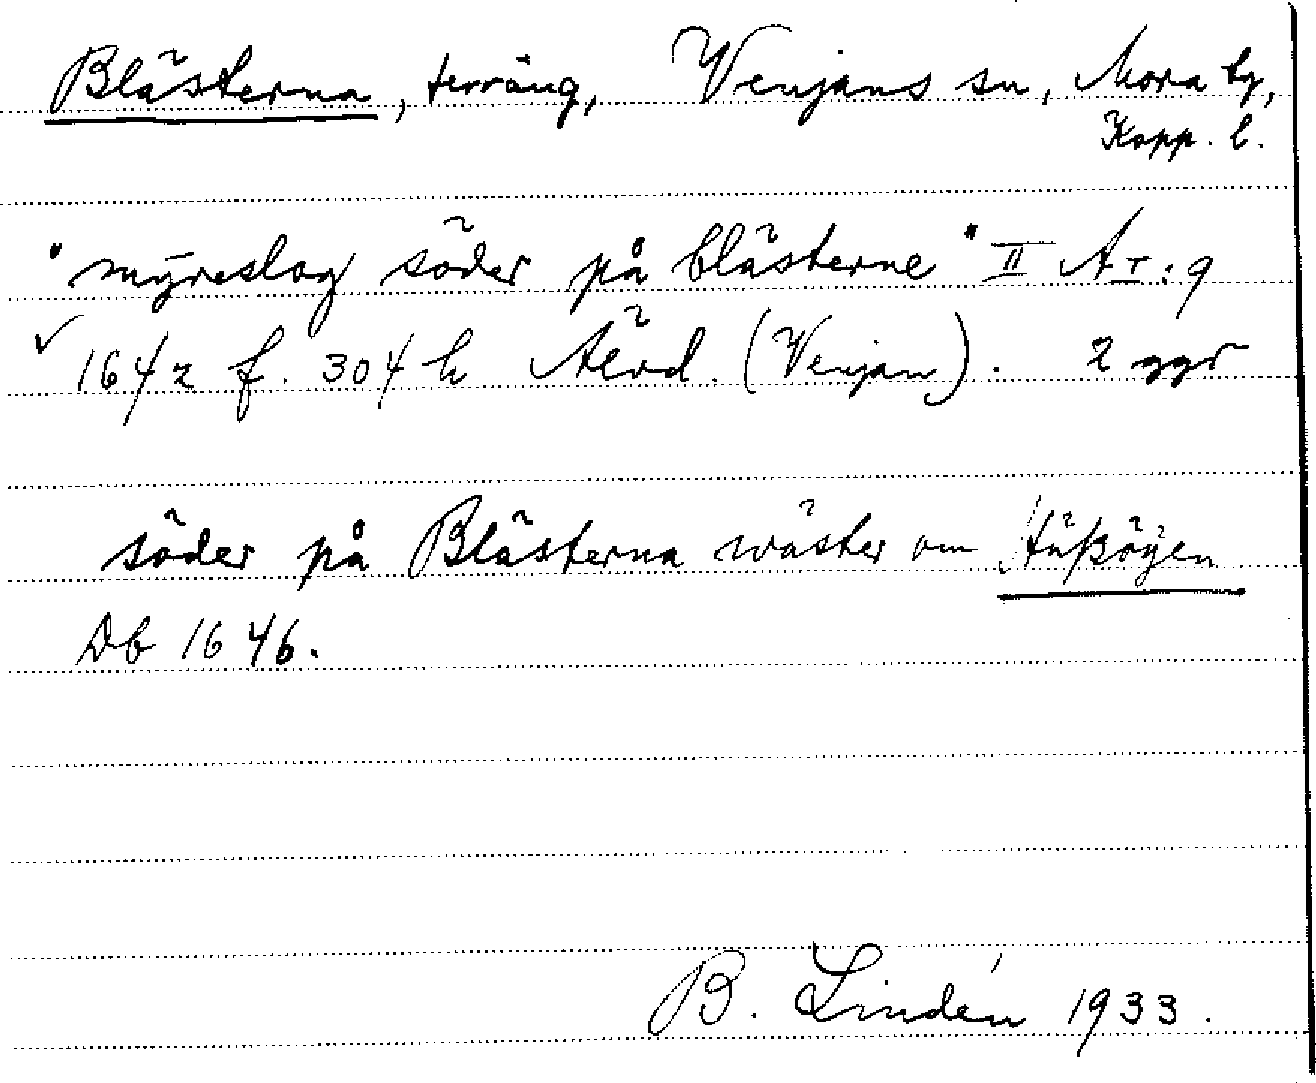 Blästerna, terräng, Venjans sn, Mora tg,
Kopp. l.
"mÿreslog söder på blästerne" II A I:9
✓ 1642 f. 304 h Älvd. (Venjan). 2 ggr
söder på Blästerna wäster om
Db 1646.
B. Lindén 1933.